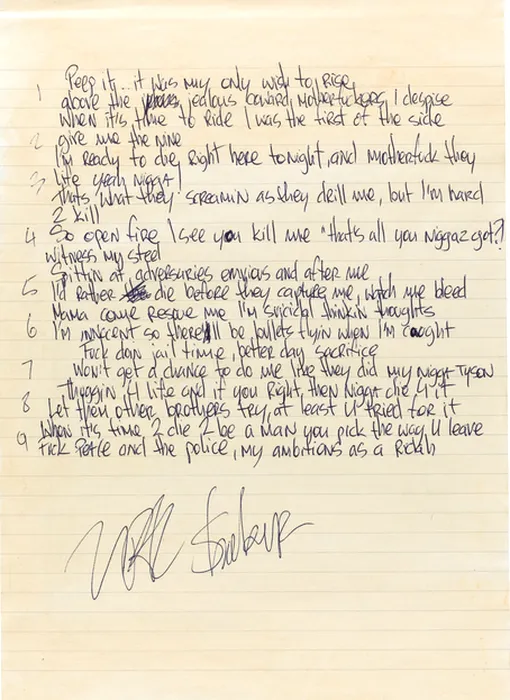 1 Peep it... it was my only wish to rise
above the jealous coward Motherfuckers I despise
when it's time to Ride I was the first of the side
2 give me the nine
I'm ready to die Right here tonight, and Motherfuck they
3 life yeah nigga!
thats what they screamin as they drill me, but I'm hard
2 kill
4 So open fire I see you kill me "that's all you Niggaz got?
witness my steel
Spittin at adversuries envious and after me
5 I'd rather die before they capture me, watch me bleed
Mama come Rescue me I'm suicidal thinkin thoughts
6 I'm innocent so there'll be bullets flyin when I'm caught
Fuck doin jail time, better day sacrifice
7 Won't get a chance to do me like they did my nigga Tyson
Thuggin 4 life and if you Right, then Nigga die 4 it
8 Let them other brothers try, at least U tried for it
9 When it's time 2 die 2 be a man you pick the way U leave
Fuck Peace and the police, my ambitions as a Ridah